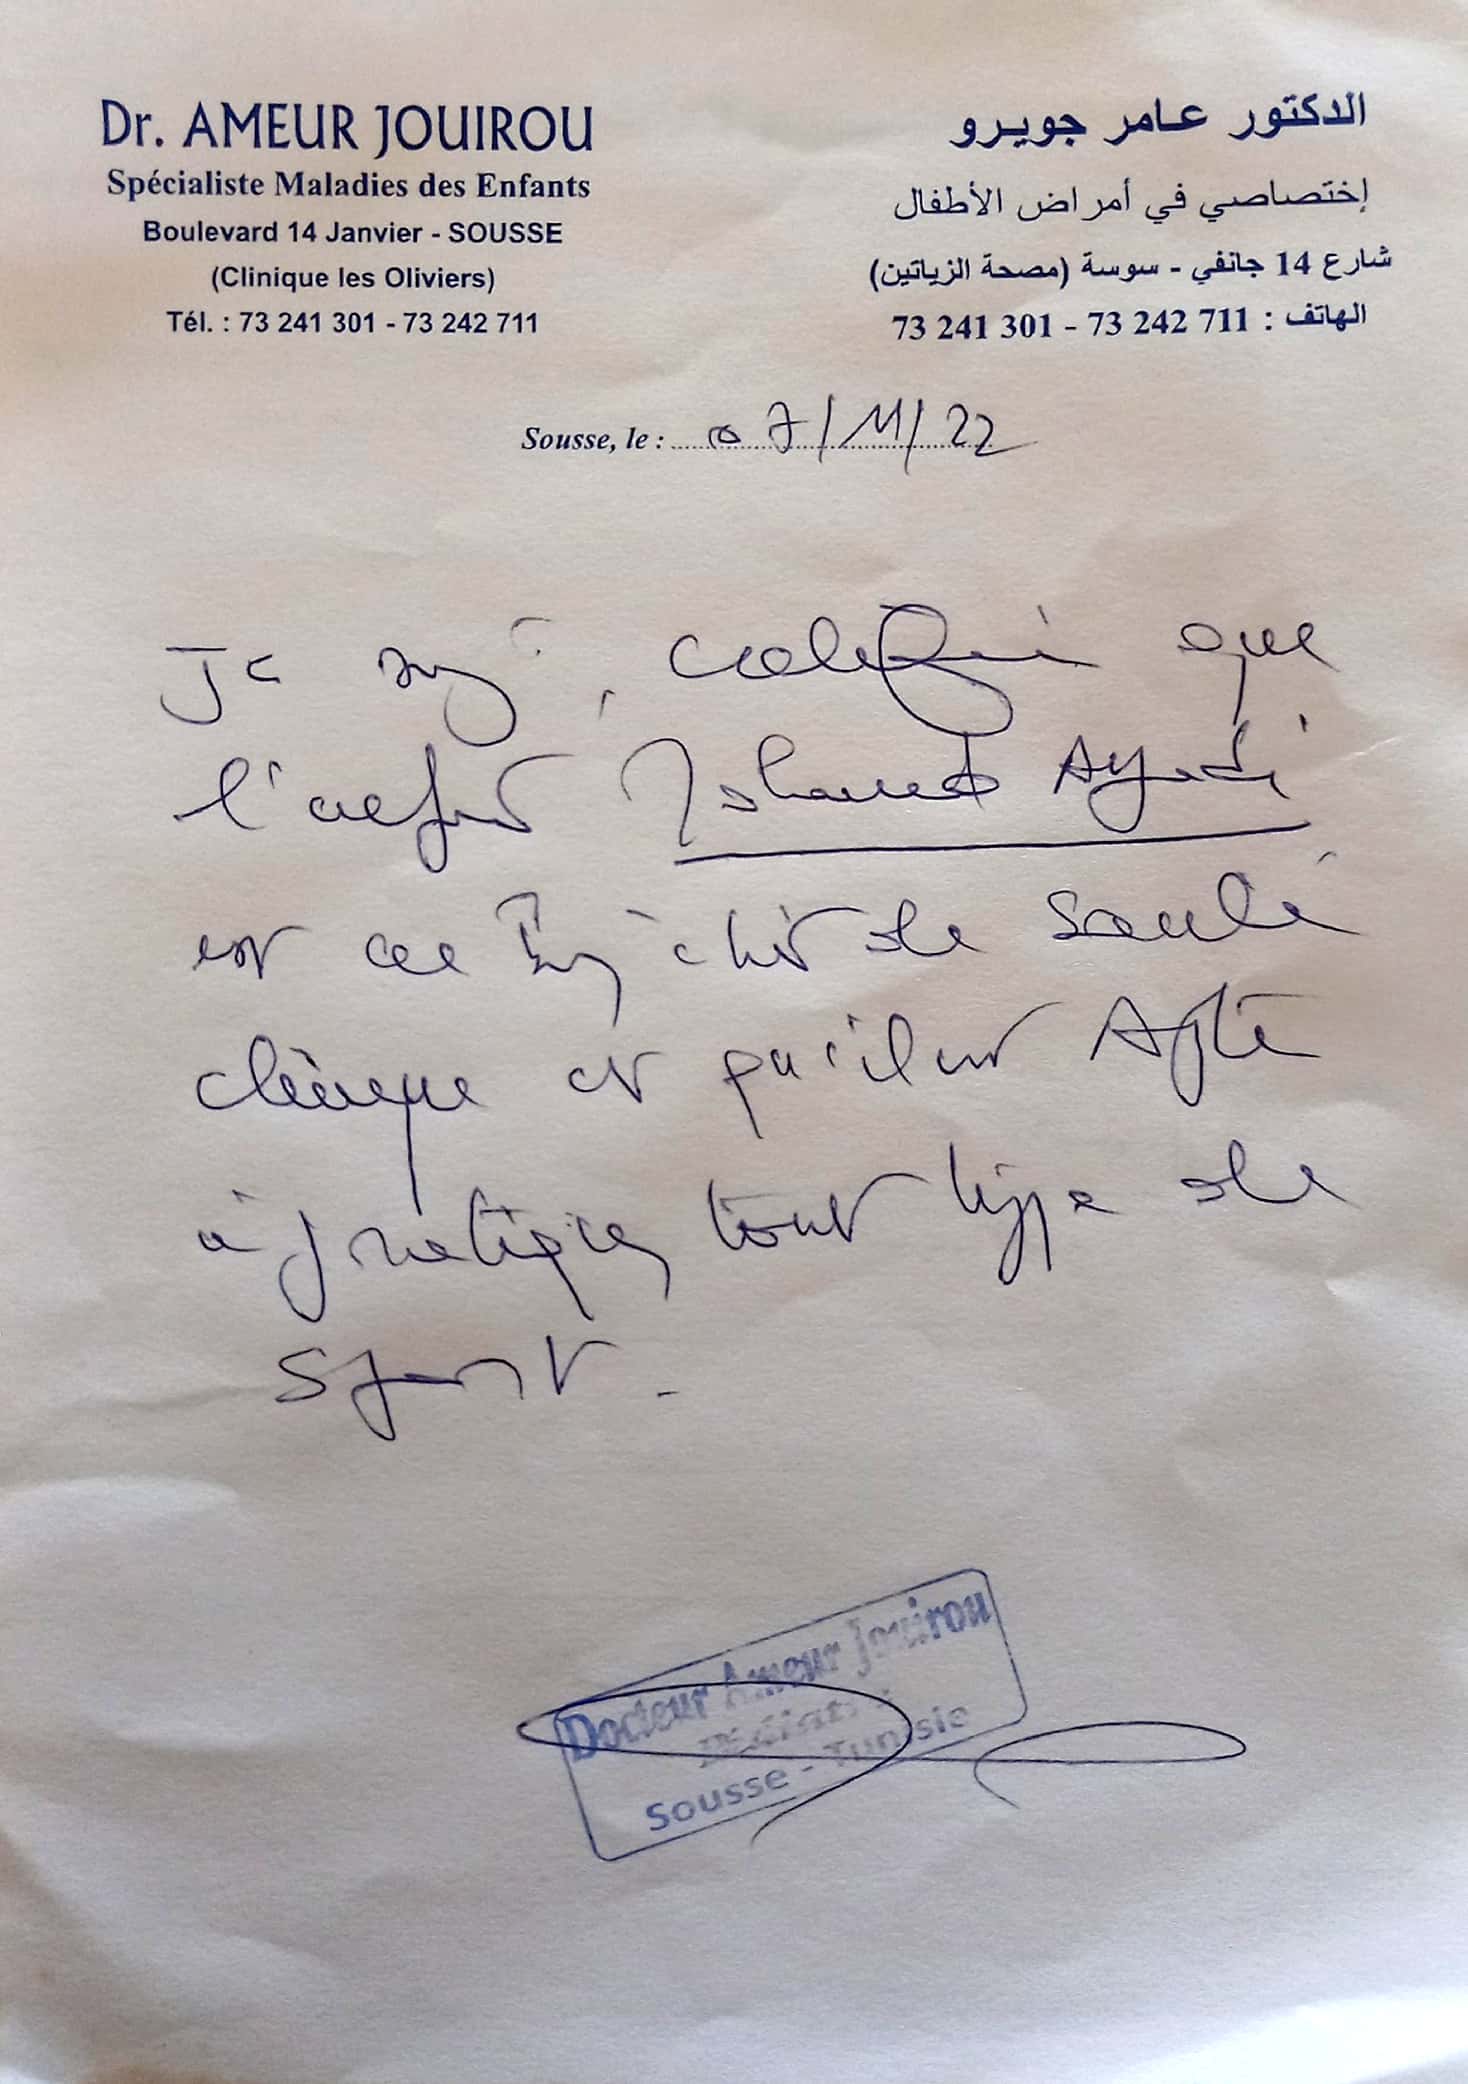 Dr. AMEUR JOUIROU
Spécialiste Maladies des Enfants
Boulevard 14 Janvier - SOUSSE
(Clinique les Oliviers)
Tél. : 73 241 301 - 73 242 711
الدكتور عامر جويرو
إختصاصي في أمراض الأطفال
شارع 14 جانفي - سوسة (مصحة الزياتين)
الهاتف : 711 242 73 - 301 241 73
Sousse, le : 07/11/22
Je certifie que
l'enfant Mohamed Ayadi
est en de santé
clinique et qu'il est Apte
à pratiquer tout type de
Sport.
Docteur Ameur Jouirou
Pédiatre
Sousse - Tunisie